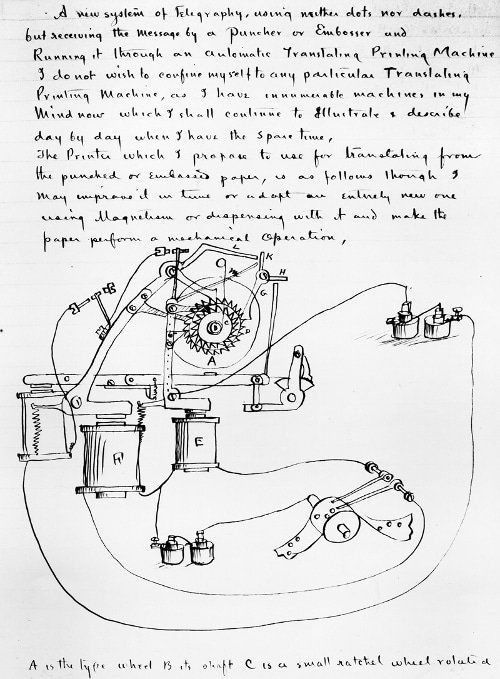 A new system of Telegraphy, using neither dots nor dashes,
but receiving the message by a Puncher or Embosser and
Running it through an automatic Translating Printing Machine
I do not wish to confine myself to any particular Translating
Printing Machine, as I have innumerable machines in my
Mind now which I shall continue to Illustrate & describe
day by day when I have the spare time,
The Printer which I propose to use for translating from
the punched or Embossed paper, is as follows though I
may improve it in time or adapt an entirely new one
using Magnetism or dispensing with it and make the
paper perform a mechanical operation,
L
K
H
G
B
D
A
E
A is the type wheel B its shaft C is a small ratchet wheel rotated